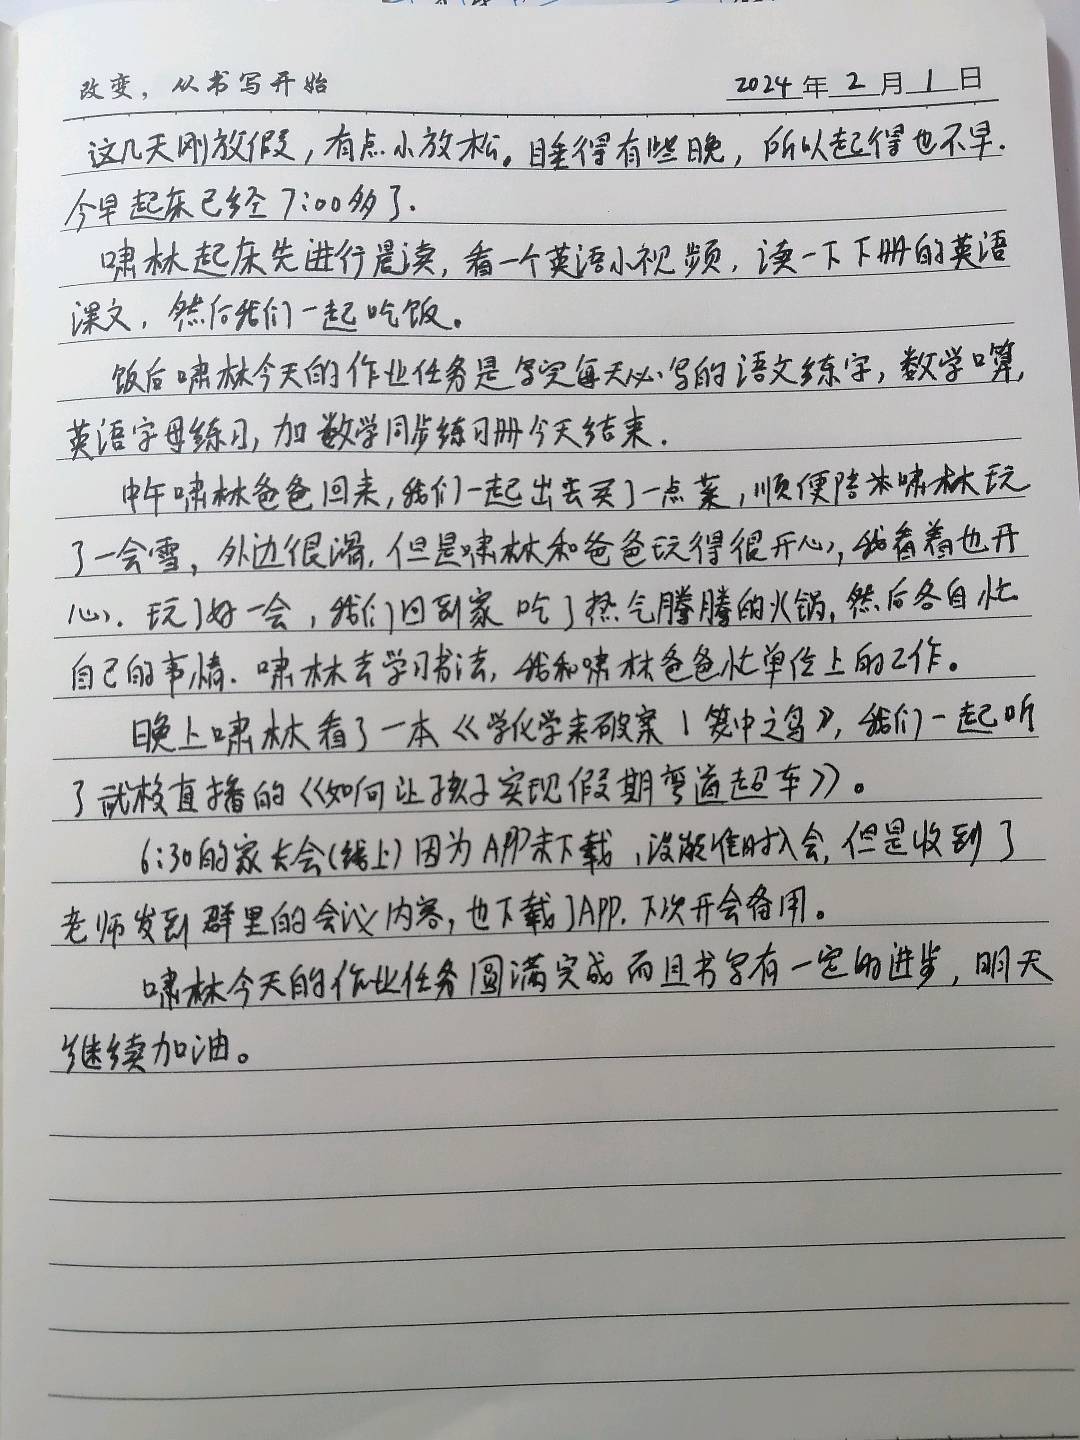 改变，从书写开始
2024年2月1日
这几天刚放假，有点小放松。睡得有些晚，所以起得也不早.
今早起床已经7:00多了.
啸林起床先进行晨读，看一个英语小视频，读一下下册的英语
课文，然后我们一起吃饭。
饭后啸林今天的作业任务是写完每天必写的语文练字，数学口算，
英语字母练习，加数学同步练习册今天结束.
中午啸林爸爸回来，我们一起出去买了一点菜，顺便陪啸林玩
了一会雪，外边很滑，但是啸林和爸爸玩得很开心，我看着也开
心. 玩了好一会，我们回到家吃了热气腾腾的火锅，然后各自忙
自己的事情. 啸林去学习书法，我和啸林爸爸忙单位上的工作。
晚上啸林看了一本《学化学来破案1笼中之鸟》，我们一起听
了试校直播的《如何让孩子实现假期弯道超车》。
6:30的家长会(线上)因为APP未下载，没能准时入会，但是收到了
老师发到群里的会议内容，也下载了APP，下次开会备用。
啸林今天的作业任务圆满完成而且书写有一定的进步，明天
继续加油。